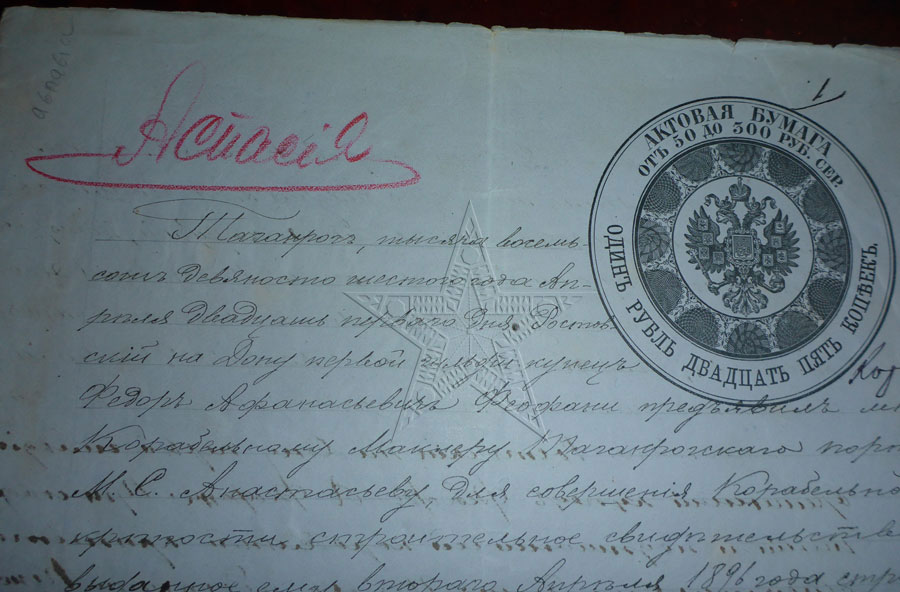 Аспасія
1/
АКТОВАЯ БУМАГА
ОТЪ 50 ДО 300 РУБ. СЕР.
ОДИНЪ РУБЛЬ ДВАДЦАТЬ ПЯТЬ КОПѢЕКЪ.
Таганрогъ, тысяча восемь-
сотъ девяносто шестого года Ап-
рѣля двадцать перваго дня Ростов-
скій на Дону первой гильдіи купецъ
Федоръ Афанасьевичъ Феофани предъявилъ
Корабельному Маклеру Таганрогскаго
М. С. Анастасьеву, для совершенія Корабельно
крѣпости, строительное свидѣтельств
выданное ему второго Апрѣля 1896 года